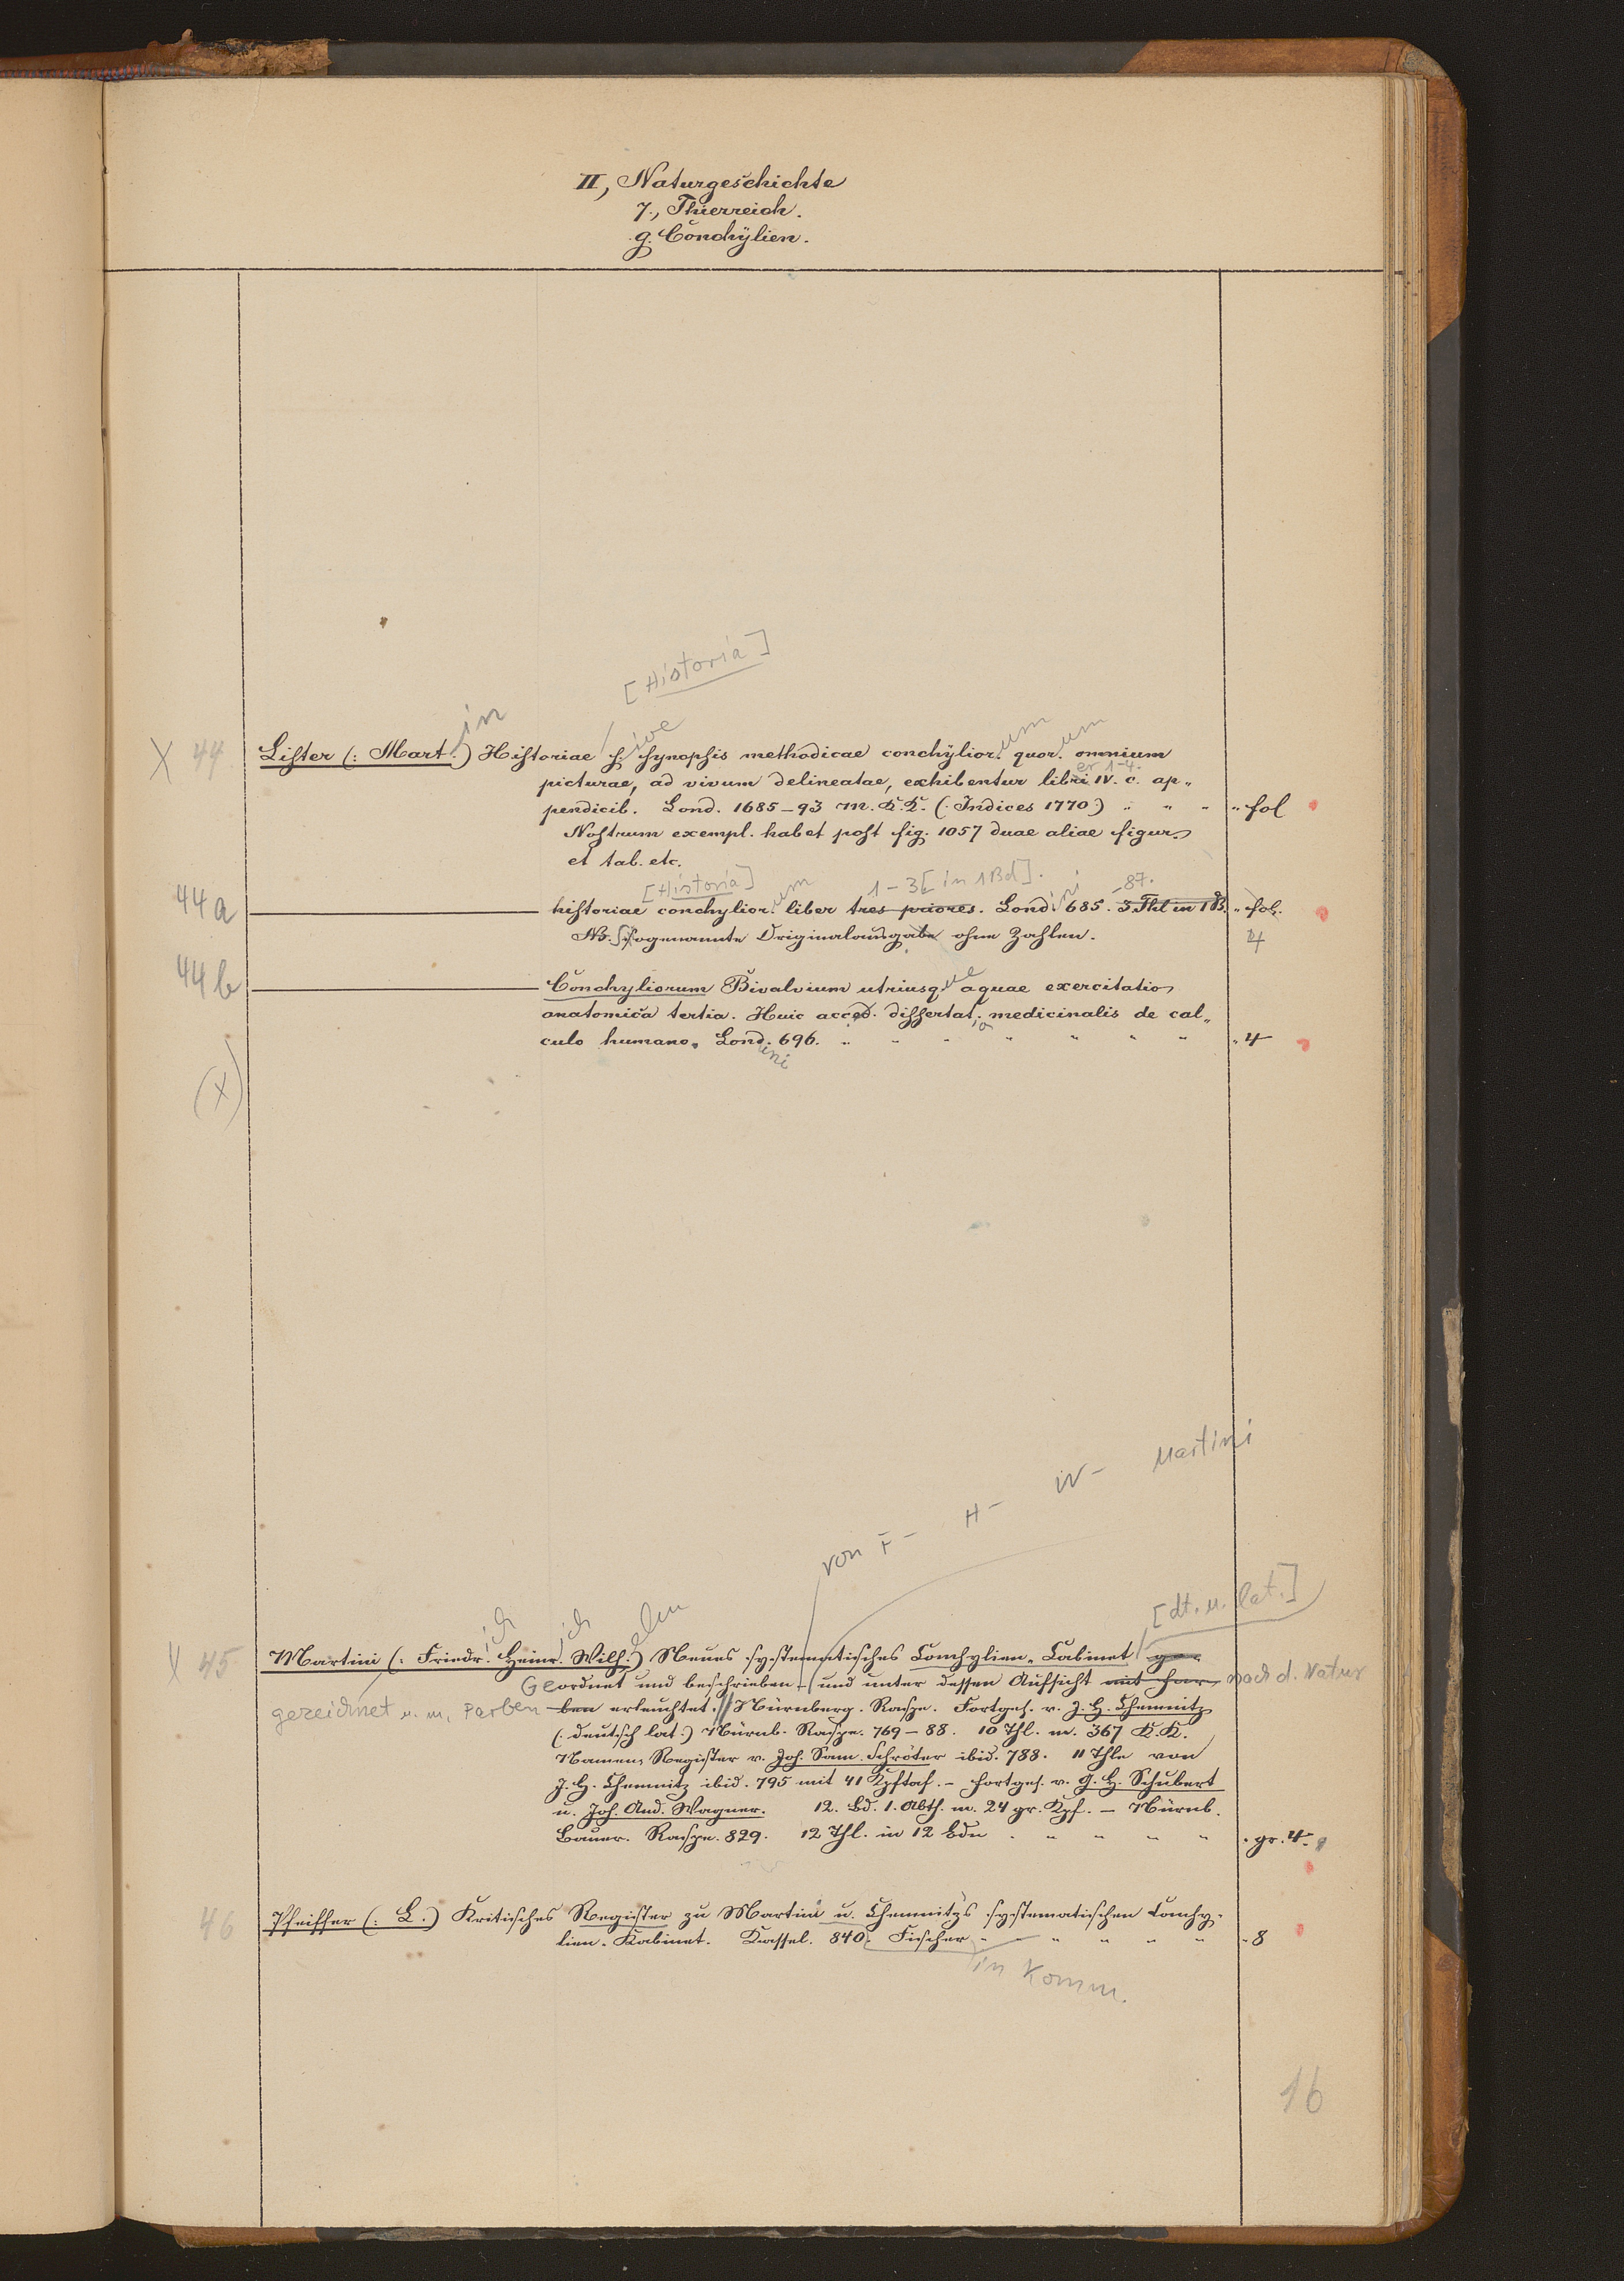 II, Naturgeschichte
7., Thierreich.
g. Conchÿlien.
[Historia]
in ive um um
X 44 Lister (: Mart.) Historiae s. synopsis methodicae conchÿlior. quor. omnium
er 1-4.
picturae, ad vivum delineatae, exhibentur libri IV. c. ap„
pendicib. Lond. 1685-93 m. K.K. (: Indices 1770.) „ „ „ „ fol
Nostrum exempl. habet post fig. 1057 duae aliae figur.
et tab. etc.
[Historia] um 1-3 [in 1 Bd]. ini -87.
44a historiae conchylior. liber tres priores. Lond. 685. 3 Thl in 1 B. „ fol.
NB. Sogenannte Originalausgabe ohne Zahlen. 4
44b Conchyliorum Bivalvium utriusq. aquae exercitatio
ue
anatomica tertia. Huic acced. dissertat. medicinalis de cal„
io
culo humano. Lond. 696. „ „ „ „ „ „ „ „ 4
ini
(X)
von F- H- W- Martini
[dt. u. lat.]
ich ich elm
X 45 Martini (: Friedr. Heinr. Wilh.) Neues systematisches Conchylien-Cabinet ge-
Geordnet und beschrieben und unter dessen Aufsicht mit Far- nach d. Natur
gezeichnet u. m. Farben ben erleuchtet. Nürnberg. Raspe. Fortges. v. J. H. Chemnitz
(: deutsch lat:) Nürnb. Raspe. 769-88. 10 Thl. m. 367 K.K.
Namen-Register v. Joh. Sam. Schröter ibid. 788. 11 Thle von
J. H. Chemnitz ibid. 795 mit 41 Kpftaf. - fortges. v. G. H. Schubert
u. Joh. And. Wagner. 12. Bd. 1. Abth. m. 24 gr. Kpf. - Nürnb.
Bauer. Raspe. 829. 12 Thl. in 12 Bdn „ „ „ „ „ gr. 4.
46 Pfeiffer (: L.) Kritisches Register zu Martini u. Chemnitz's systematischen Conchy-
lien-Kabinet. Kassel. 840. Fischer „ „ „ „ „ „ 8
in Komm.
16